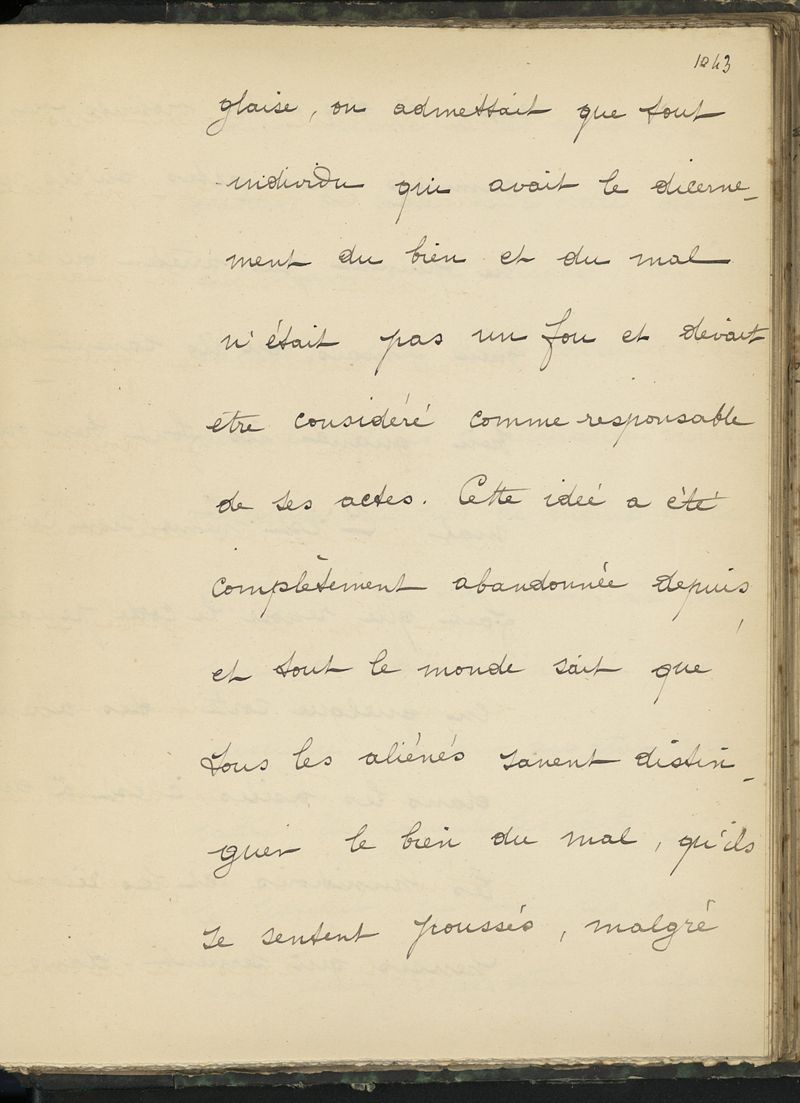 1043
glaise, on admettait que tout
individu qui avait le dicerne-
ment du bien et du mal
n'était pas un fou et devait
etre considéré comme responsable
de ses actes. Cette idée a été
complètement abandonnée depuis,
et tout le monde sait que
tous les aliénés savent distin-
guer le bien du mal, qu'ils
se sentent poussés, malgré